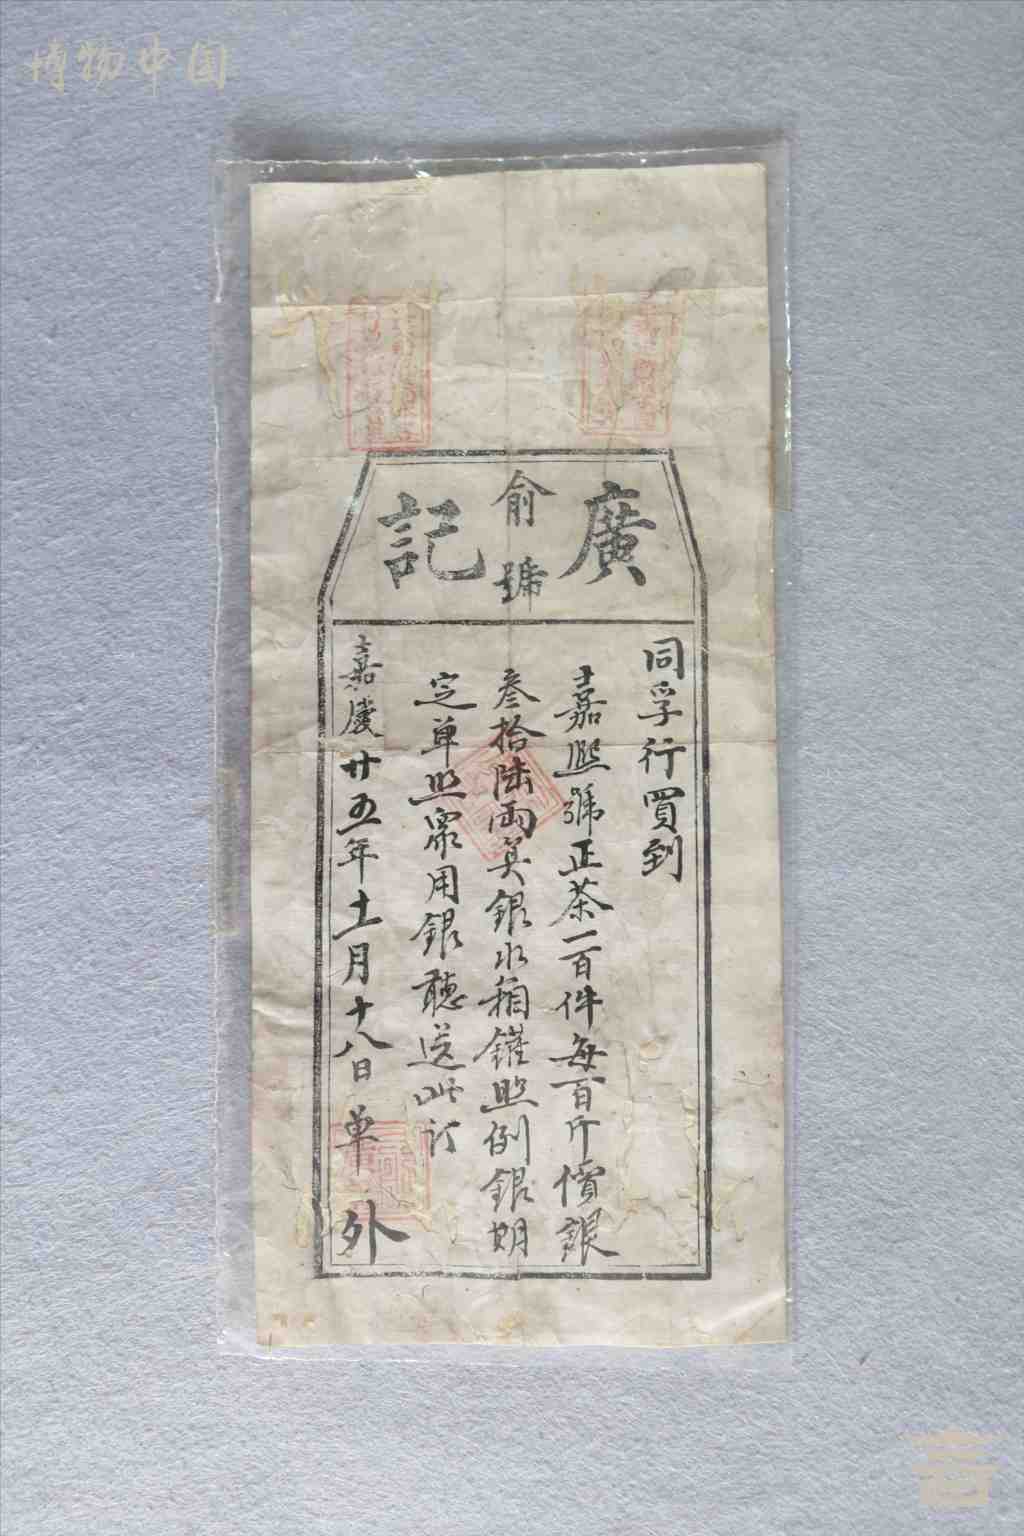 博物中国
廣俞號記
同孚行買到
嘉熙號正茶一百件每百斤價銀
叁拾陸兩算銀水箱鑵照例銀期
定单照眾用銀聽送此訂
嘉慶廿五年十一月十八日单 外